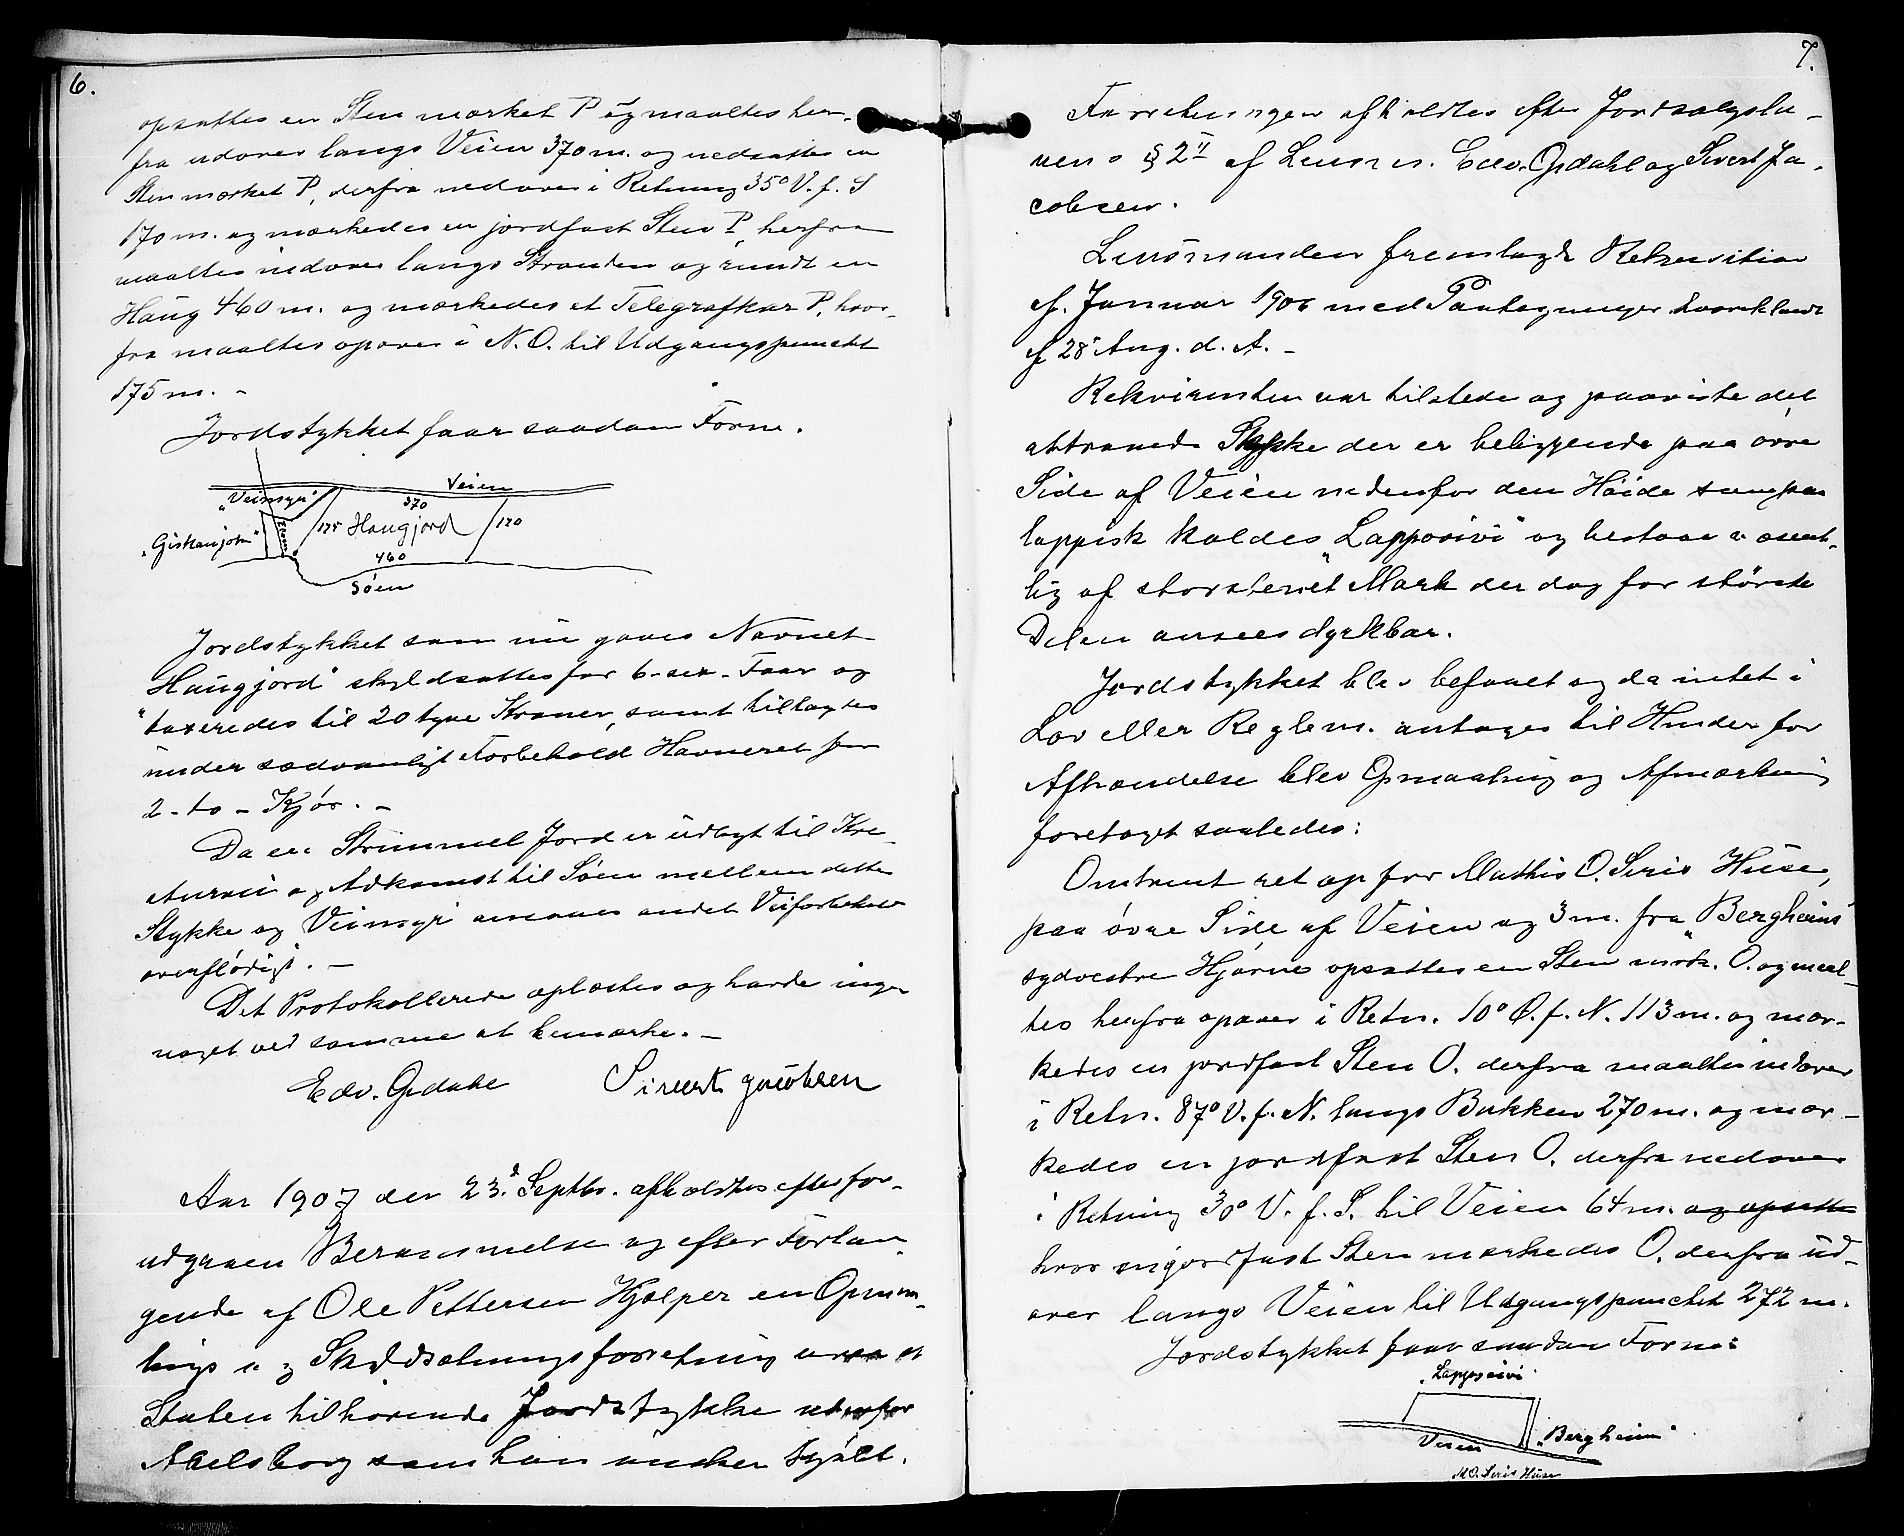 6.
opsattes en Sten mærket P og maaltes her-
fra udover langs Veien 370 m. og nedsattes en
Sten mærket P, derfra nedover i Retning 35° V. f. S
170 m. og mærkedes en jordfast Sten P, herfra
maaltes indover langs Stranden og rundt en
Haug 460 m. og mærkedes et Telegrafkar P, hvor-
fra maaltes opover i N. O. til Udgangspunctet
175 m. –
Jordstykket faar saadan Form.
Veien
"Veimyr"
370
175 Haugjord 170
"Giskanjok"
460
Søen
Jordstykket som nu gaves Navnet
"Haugjord" skyldsattes for 6 - sex - Ører og
taxeredes til 20 tyve Kroner, samt tillagdes
under sædvanligt Forbehold Havneret for
2 - to - Kjør. –
Da en Strimmel Jord er udlagt til Kre-
aturvei og Adkomst til Søen mellem dette
Stykke og Veimyr ansaaes andet Veiforbehold
overflødigt. –
Det Protokollerede oplæstes og havde ingen
noget ved samme at bemærke. –
Edv. Opdahl Sivert Jacobsen
Aar 1907 den 23.d Septbr. afholdtes efter for-
udgaaen Berammelse og efter Forlan-
gende af Ole Pettersen Hjelper en Opmaa-
lings og Skyldsætningsforretning over et
Staten tilhørende Jordstykke
Abelsborg som han ønsker kjøbt.
7.
Forretningen afholdtes efter Jordsalgslo-
vens § 2 af Lensm. Edv. Opdahl og Sivert Ja-
cobsen.
Lensmanden fremlagde Rekvisition
af Januar 1906 med Paategninger hvoriblandt
af 28 Aug. d. A. –
Rekvirenten var tilstede og paaviste det
attraaede Stykke der er beliggende paa øvre
Side af Veien nedenfor den Høide som paa
lappisk kaldes "Lapposivi" og bestaar væsent-
lig af storstenet Mark der dog for største
Delen ansees dyrkbar.
Jordstykket blev befaret og da intet i
Lov eller Reglem. antages til Hinder for
Afhændelse blev Opmaaling og Afmærkning
foretaget saaledes:
Omtrent ret op for Mathis O. Siris Huse,
paa øvre Side af Veien og 3 m. fra "Bergheims"
sydvestre Hjørne opsattes en Sten mrk. O. og maal-
tes herfra opover i Retn. 10° O. f. N. 113 m. og mær-
kedes en jordfast Sten O. derfra maaltes indover
i Retn. 87° V. f. N. langs Bakken 270 m. og mær-
kedes en jordfast Sten O. derfra nedover
i Retning 30° V. f. S. til Veien 64 m. og opsatte
hvor en jordfast Sten mærkedes O. derfra ud-
over langs Veien til Udgangspunctet 272 m.
Jordstykket faar saadan Form:
"Lapposivi"
Veien "Bergheim"
M. O. Siris Huse